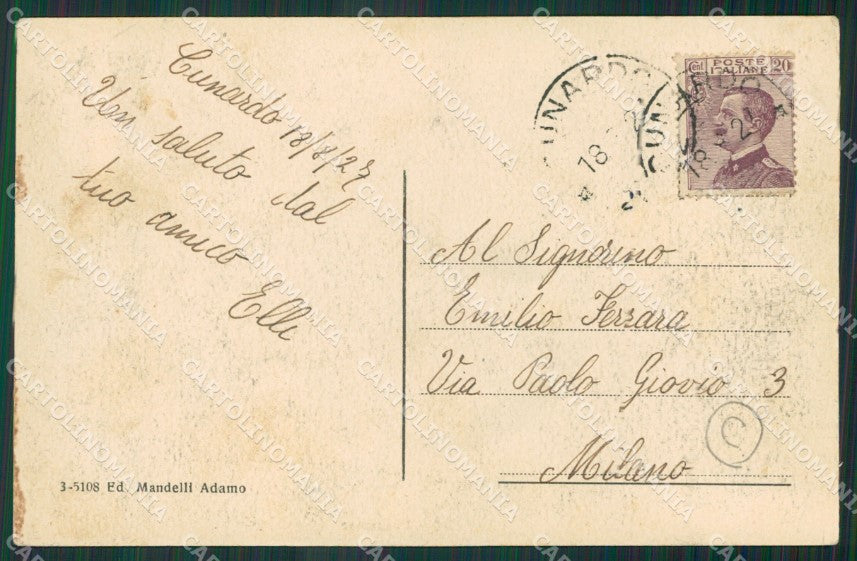 Cunardo 18/8/25
Un saluto dal
tuo amico
Elli
3-5108 Ed. Mandelli Adamo
CUNARDO
18
CUNARDO
18
Cent. POSTE ITALIANE 20
Al Signorino
Emilio Ferrara
Via Paolo Giovio 3
Milano
C
CARTOLINOMANIA